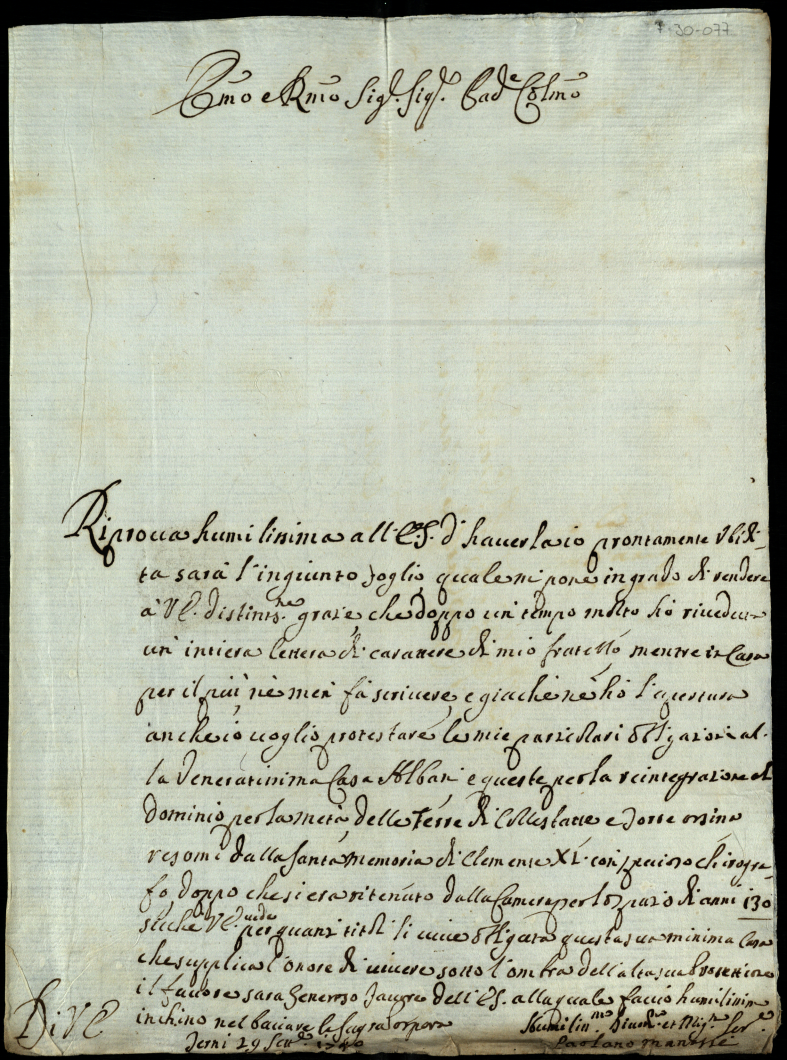 7-30-077
Emo e Rmo Sig.r Sig.r Pad.e Colmo
Riprova humilissima all'E.S. d'haverla io prontamente ubidi-
ta sarà l'ingiunto foglio, quale mi pone in grado di rendere
à V.E. distintis.me grazie, che doppo un tempo molto hò riveduta
un' intiera lettera di carattere di mio fratello, mentre in Casa
per il più nè men fà scrivere, e giache nè hò l'apertura
anche io voglio protestare le mie particolari obligazioni al-
la Veneratissima Casa Albani, e queste per la reintegrazione al
dominio per la metà, delle Terre di Collestatte e Torre orsina
resomi dalla santa memoria di Clemente XI. con spezioso chirogra-
fo, doppo che si era ritenuto dalla Camera per lo spazio di anni 130
siche V.E. vede per quanti titoli li vive obligata questa sua minima Casa
che supplica l'onore di vivere sotto l'ombra dell'alta sua Protettione
il favore sara Generoso dell'E.S. alla quale faccio humilissimo
inchino nel baciare la Sagra Porpora
Di V E
Terni 29 Sett.e 1740
Humilis.mo Divot.o et Oblig.o Ser.e
Paolano Manassei